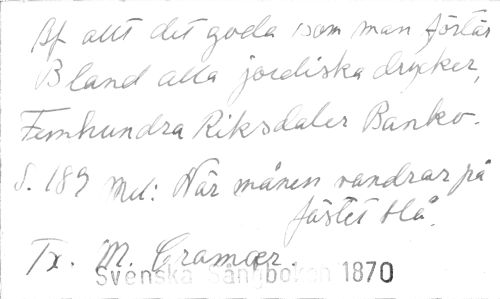 Af allt det goda som man förtär
Bland alla jordiska drycker,
Femhundra Riksdaler Banko.
S. 189 Mel: När månen vandrar på
fästet blå.
Tx. M. Cramær.
Svenska Sångboken 1870